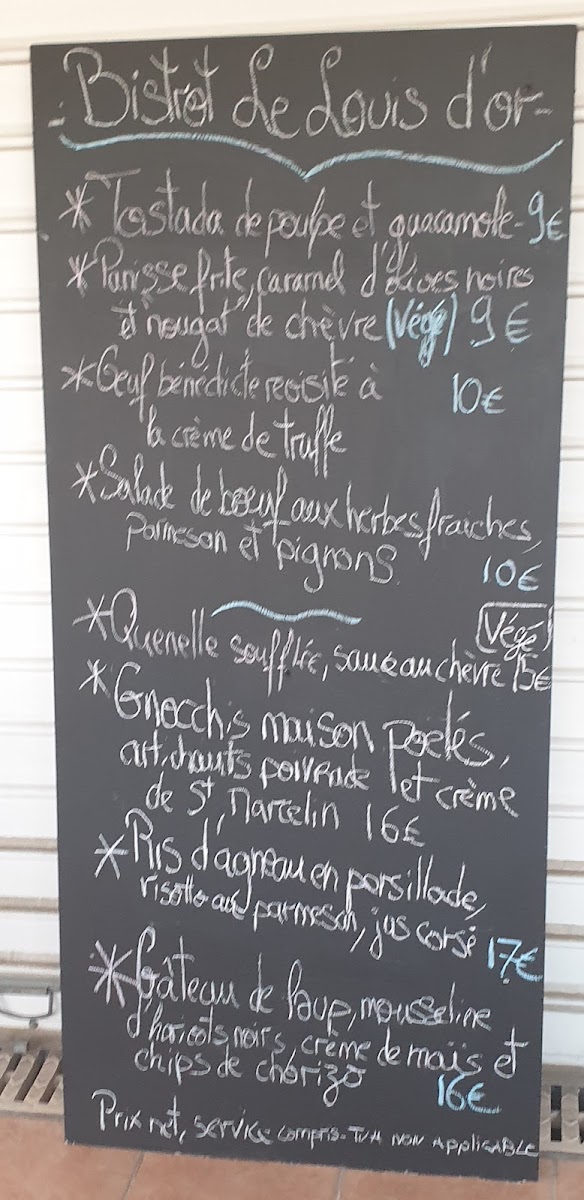 - Bistrot Le Louis d'or -
* Tastada de poulpe et guacamole - 9€
* Panisse frite, caramel d'olives noires
et "nougat" de chèvre (Végé) 9€
* Oeuf bénédicte revisité à 10€
la crème de truffe
* Salade de boeuf aux herbes fraiches,
parmesan et pignons 10€
* Quenelle soufflée, sauce au chèvre 15€ (Végé)
* Gnocchis maison poelés,
artichauts poivrade et crème
de St Marcelin 16€
* Ris d'agneau en persillade,
risotto au parmesan, jus corsé 17€
* Gâteau de loup, mousseline
d'haricots noirs, crème de maïs et
chips de chorizo 16€
Prix net, service compris - TVA NON APPLICABLE